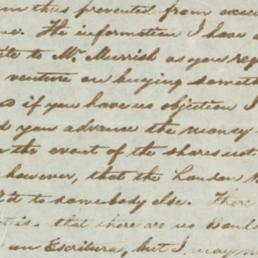 thus prevented from
The information I have
to Mr. Murrish as you
venture on buying
if you have no objection I
you advance the money
the event of the shares not
however, that the London
to somebody else. There
is. that there are no
an Escritura, but I may